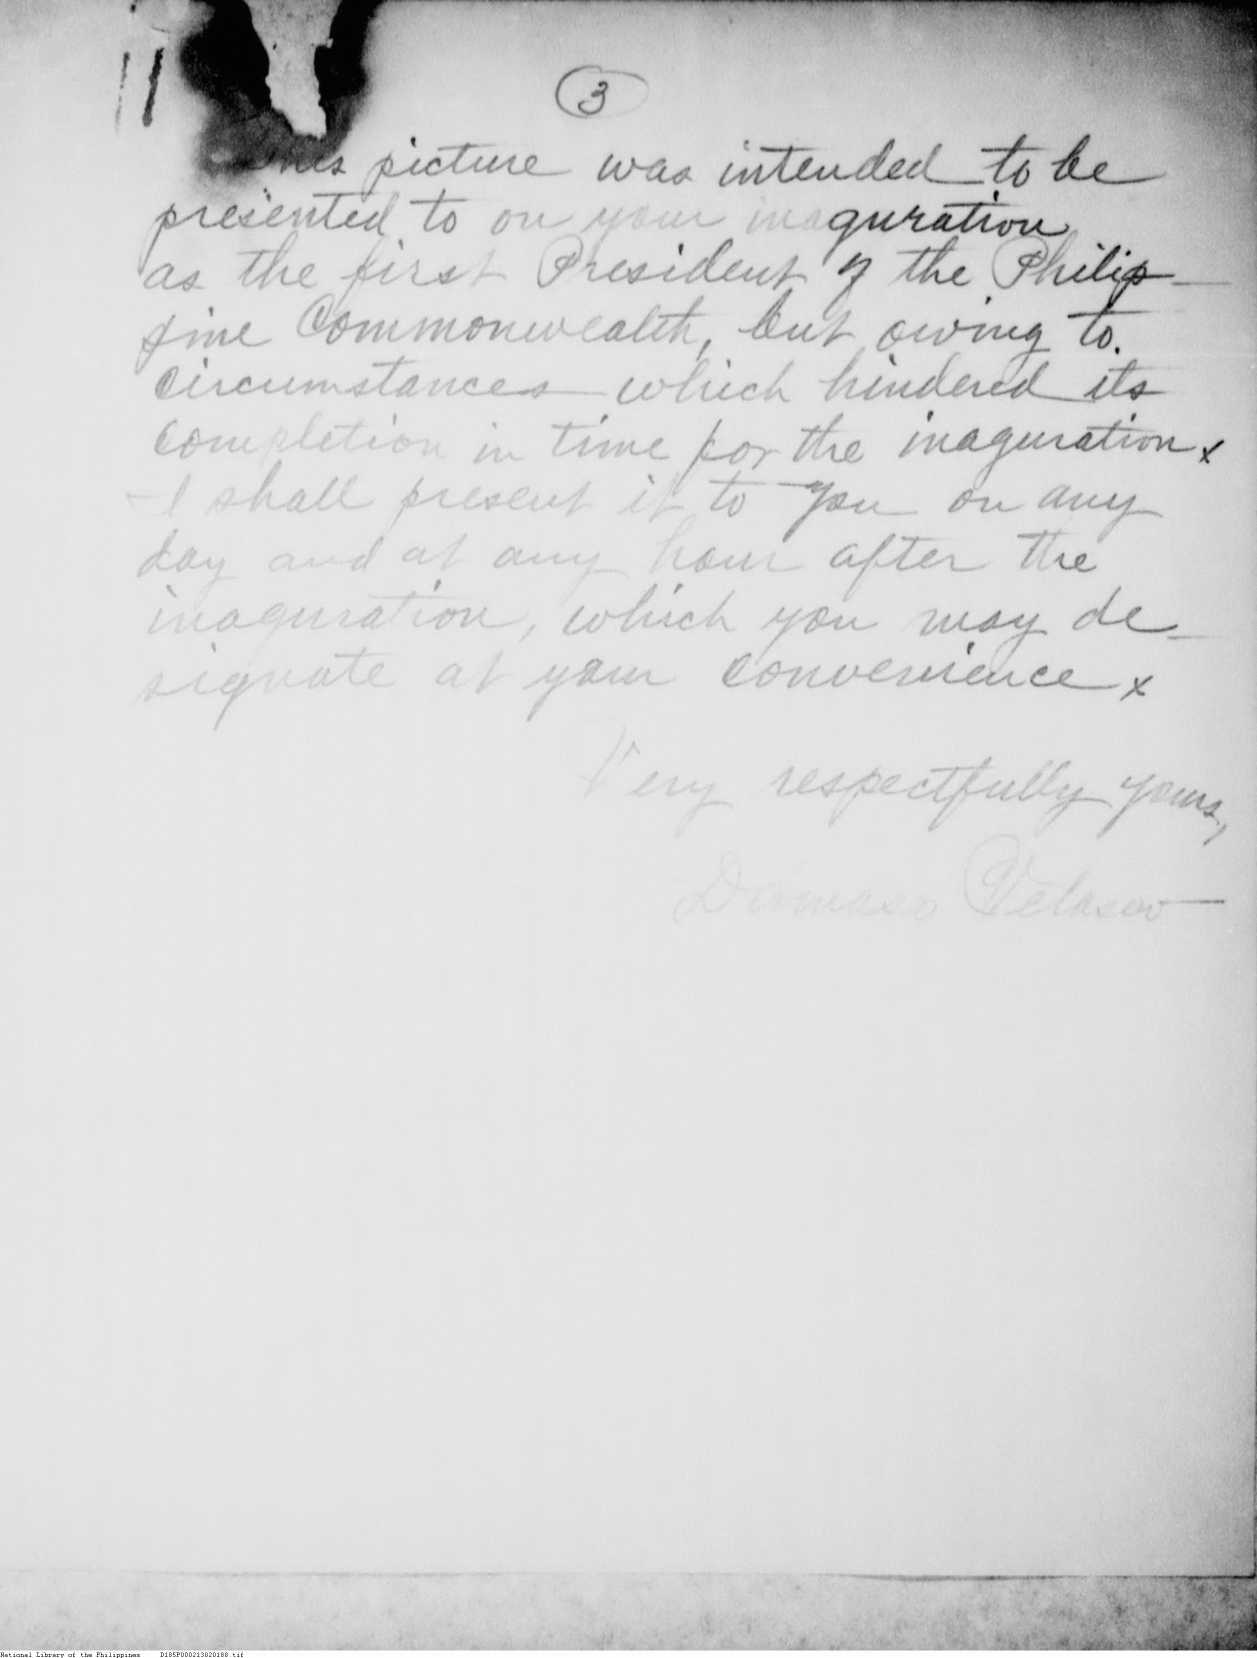 3
This picture was intended to be
presented to on your inaguration
as the first President of the Philip-
pine Commonwealth, but owing to.
circumstances which hindered its
completion in time for the inaguration x
I shall present it to you on any
day and at any hour after the
inaguration, which you may de-
signate at your convenience x
Very respectfully yours,
Damaso Velasco
National Library of the Philippines D185P000213020188.tif